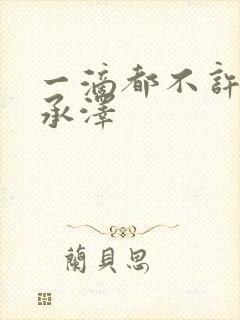 一滴都不許
承澤
蘭貝思